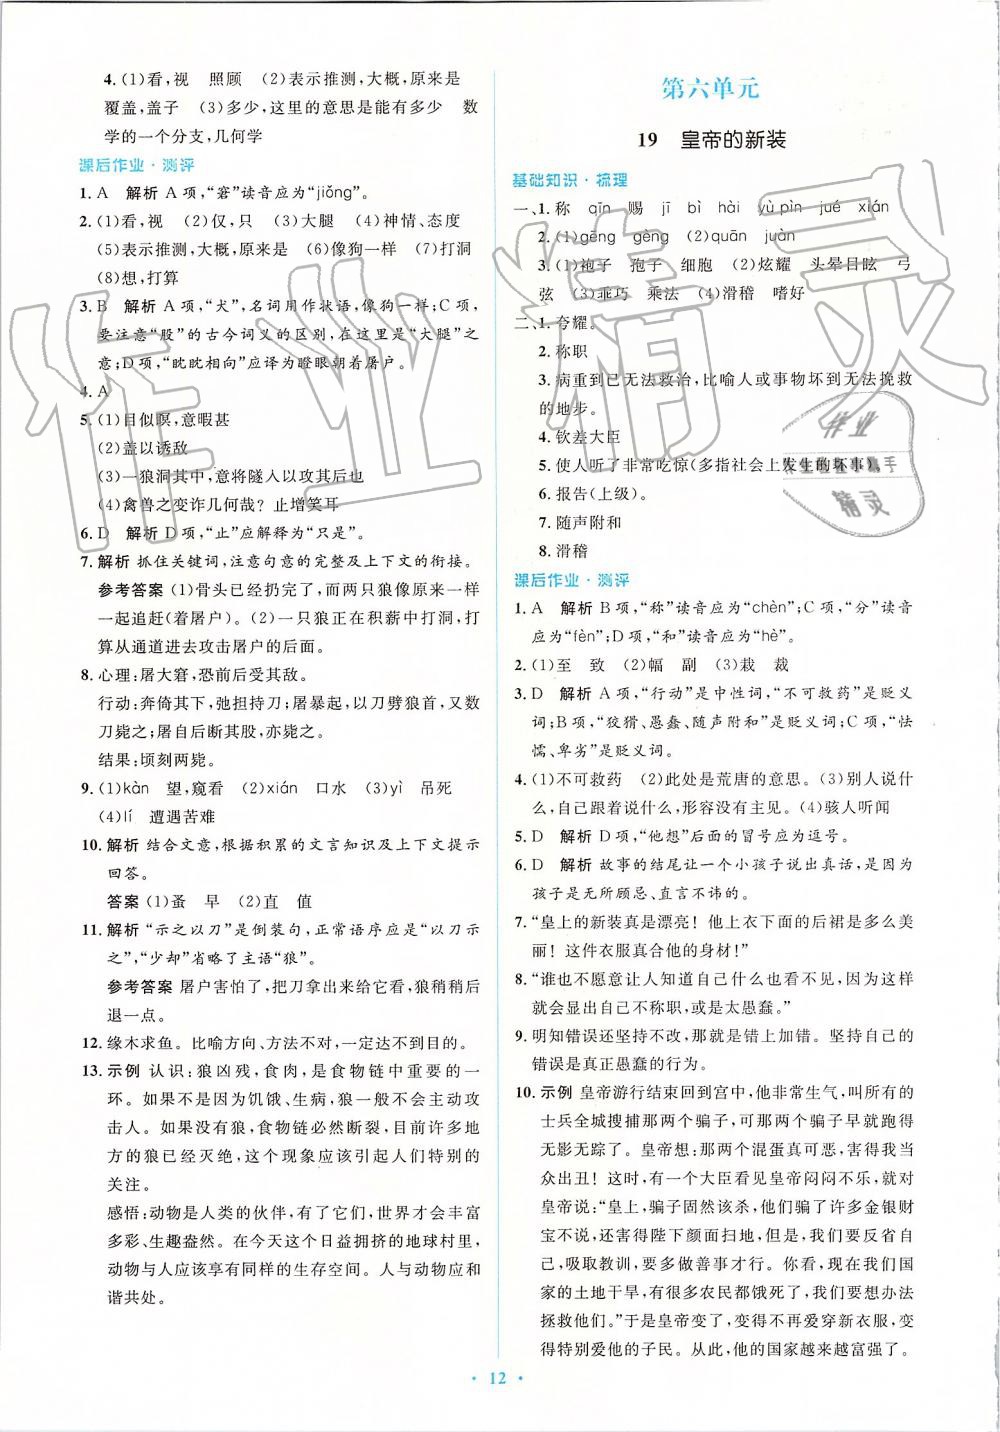 4. (1)看,视　照顾　(2)表示推测,大概,原来是
覆盖,盖子　(3)多少,这里的意思是能有多少　数
学的一个分支,几何学
课后作业·测评
1. A　解析 A项,“窘”读音应为“jiǒng”。
2. (1)看,视　(2)仅,只　(3)大腿　(4)神情、态度
(5)表示推测,大概,原来是　(6)像狗一样　(7)打洞
(8)想,打算
3. B　解析 A项,“犬”,名词用作状语,像狗一样;C项,
要注意“股”的古今词义的区别,在此是“大腿”之
意;D项,“眈眈相向”应译为瞪眼朝着屠户。
4. A
5. (1)目似瞑,意暇甚
(2)盖以诱敌
(3)一狼洞其中,意将隧入以攻其后也
(4)禽兽之变诈几何哉? 止增笑耳
6. D　解析 D项,“止”应解释为“只是”。
7. 解析 抓住关键词,注意句意的完整及上下文的衔接。
参考答案 (1)骨头已经扔完了,而两只狼像原来一样
一起追赶(着屠户)。 (2)一只狼正在积薪中打洞,打
算从通道进去攻击屠户的后面。
8. 心理:屠大窘,恐前后受其敌。
行动:奔倚其下,弛担持刀;屠暴起,以刀劈狼首,又数
刀毙之;屠自后断其股,亦毙之。
结果:顷刻两毙。
9. (1)kàn　望,窥看　(2)xián　口水　(3)yì　吊死
(4)lí　遭遇苦难
10. 解析 结合文意,根据积累的文言知识及上下文提示
回答。
答案 (1)蚤　早　(2)直　值
11. 解析 “示之以刀”是倒装句,正常语序应是“以刀示
之”,“少却”省略了主语“狼”。
参考答案 屠户害怕了,把刀拿出来给它看,狼稍稍后
退一点。
12. 缘木求鱼。比喻方向、方法不对,一定达不到目的。
13. 示例 认识:狼凶残,食肉,是食物链中重要的一
环。如果不是因为饥饿、生病,狼一般不会主动攻
击人。如果没有狼,食物链必然断裂,目前许多地
方的狼已经灭绝,这个现象应该引起人们特别的
关注。
感悟:动物是人类的伙伴,有了它们,世界才会丰富
多彩、生趣盎然。在今天这个日益拥挤的地球村里,
动物与人应该享有同样的生存空间。人与动物应和
谐共处。
第六单元
19　皇帝的新装
基础知识·梳理
一、1. 称　qīn　赐　jī　bì　hài　yù pìn　jué　xián
2. (1)gēng　gèng　(2)quān　juàn
3. (1)袍子　孢子　细胞　(2)炫耀　头晕目眩　弓
弦　(3)乖巧　乘法　(4)滑稽　嗜好
二、1. 夸耀。
2. 称职
3. 病重到已无法救治,比喻人或事物坏到无法挽救
的地步。
4. 钦差大臣
5. 使人听了非常吃惊(多指社会上发生的坏事)。
6. 报告(上级)。
7. 随声附和
8. 滑稽
课后作业·测评
1. A　解析 B项,“称”读音应为“chèn”;C项,“分”读音
应为“fèn”;D项,“和”读音应为“hè”。
2. (1)至　致　(2)幅　副　(3)栽　裁
3. D　解析 A项,“行动”是中性词,“不可救药”是贬义
词;B项,“狡猾、愚蠢、随声附和”是贬义词;C项,“怯
懦、卑劣”是贬义词。
4. (1)不可救药　(2)此处是荒唐的意思。(3)别人说什
么,自己跟着说什么,形容没有主见。(4)骇人听闻
5. D　解析 D项,“他想”后面的冒号应为逗号。
6. D　解析 故事的结尾让一个小孩子说出真话,是因为
孩子是无所顾忌、直言不讳的。
7. “皇上的新装真是漂亮! 他上衣下面的后裙是多么美
丽! 这件衣服真合他的身材!”
8. “谁也不愿意让人知道自己什么也看不见,因为这样
就会显出自己不称职,或是太愚蠢。”
9. 明知错误还坚持不改,那就是错上加错。坚持自己的
错误是真正愚蠢的行为。
10. 示例 皇帝游行结束回到宫中,他非常生气,叫所有的
士兵全城搜捕那两个骗子,可那两个骗子早就跑得
无影无踪了。皇帝想:那两个混蛋真可恶,害得我当
众出丑! 这时,有一个大臣看见皇帝闷闷不乐,就对
皇帝说:“皇上,骗子固然该杀,他们骗了许多金银财
宝不说,还害得陛下颜面扫地,但是,我们要反省自
己,吸取教训,要多做善事才行。你看,现在我们国
家的土地干旱,有很多农民都饿死了,我们要想办法
拯救他们。”于是皇帝变了,变得不再爱穿新衣服,变
得特别爱他的子民。从此,他的国家越来越富强了。
· 12 ·
作业精灵
作业
精灵